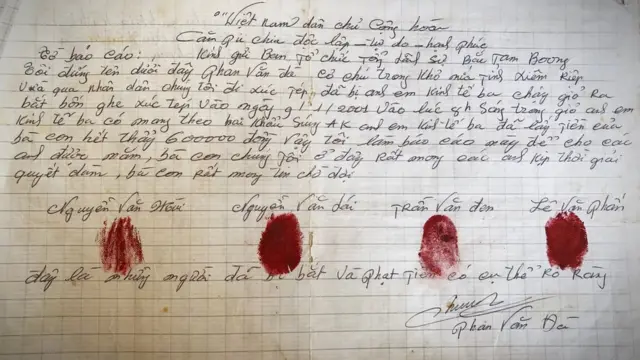 Việt Nam dân chủ Cộng hòa
Căm Pu chia độc lập - Tự do - hạnh phúc
Tờ báo cáo: Kính gửi Ban Tổ chức Tổng lãnh sự Bắc Tam Boong
Tôi đứng tên dưới đây Phan Văn Đa cố chú trong Khở mia Tỉnh Xiêm Riệp
Vừa qua nhân dân chúng tôi đi xúc Tép đã bị anh em Kinh tế ba chạy giỏ Ra
bắt bốn ghe xúc Tép Vào ngày 9/11/2001 Vào lúc 8h Sáng trong giỏ anh em
Kinh tế ba có mang theo hai Khẩu Súng AK anh em Kinh tế ba đã lấy Tiền của
bà con hết thảy 600000 đồng Vậy Tôi làm báo cáo này để cho các
anh được nắm, bà con chúng Tôi ở đây Rất mong các anh Kịp Thời giải
quyết dùm, bà con Rất mong tin chờ đợi
Nguyễn Văn Nguyễn Văn Trần Văn đen Lê Văn Phấn
đây là những người đã bị bắt Và phạt Tiền có cụ thể Rõ Ràng
Phan Văn